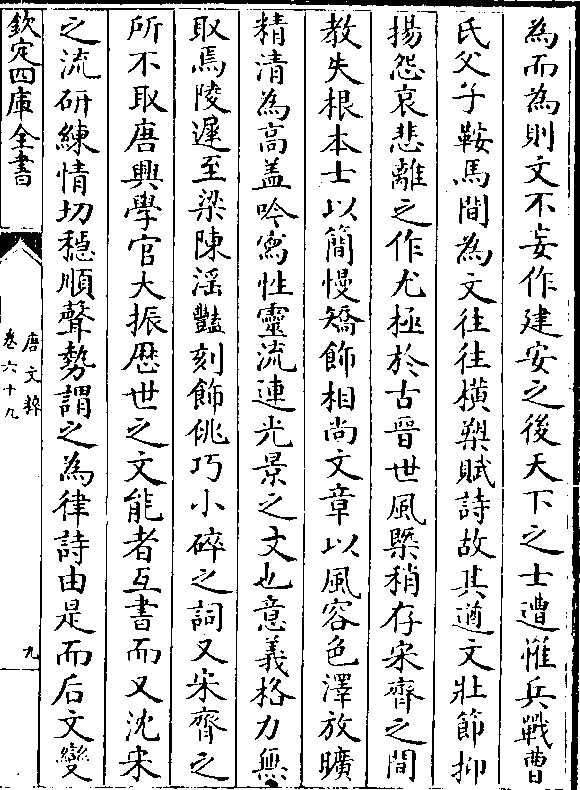 為而為則文不妄作建安之後天下之士遭罹兵戰曹
氏父子鞍馬間為文往往横槊賦詩故其遒文壯節抑
揚怨哀悲離之作尤極於古晉世風槩稍存宋齊之間
教失根本士以簡慢矯飾相尚文章以風容色澤放曠
精清為高蓋吟寫性靈流連光景之文也意義格力無
取焉陵遲至梁陳淫豔刻飾佻巧小碎之詞又宋齊之
所不取唐興學官大振歴世之文能者互書而又沈宋
之流研練情切穩順聲勢謂之為律詩由是而后文變
欽定四庫全書
唐文粹
卷六十九
九